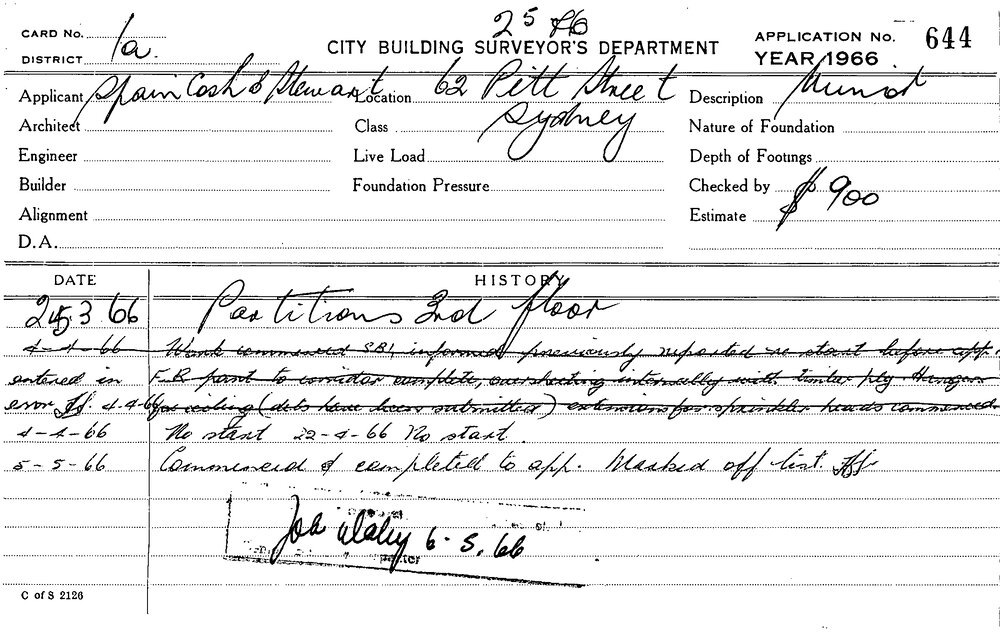 CARD No. 1a
DISTRICT
25
CITY BUILDING SURVEYOR'S DEPARTMENT
APPLICATION No. 644
YEAR 1966
Applicant Spain Cosh & Stewart
Location 62 Pitt Street
Sydney
Description
Architect
Class
Nature of Foundation
Engineer
Live Load
Depth of Footings
Builder
Foundation Pressure
Checked by
Alignment
Estimate $900
D.A.
DATE
HISTORY
25 3 66 Partitions 3rd floor
4-4-66 Work commenced SBI, informed previously reported re start before app.
entered in F.R. paint to corridor complete, oversheeting internally with timber ply. Hangers
error 4.4.66 for ceiling (dets have been submitted) extensions for sprinkler heads commenced
4-4-66 No start 22-4-66 No start.
5-5-66 Commenced & completed to app. Marked off list.
6.5.66
C of S 2126